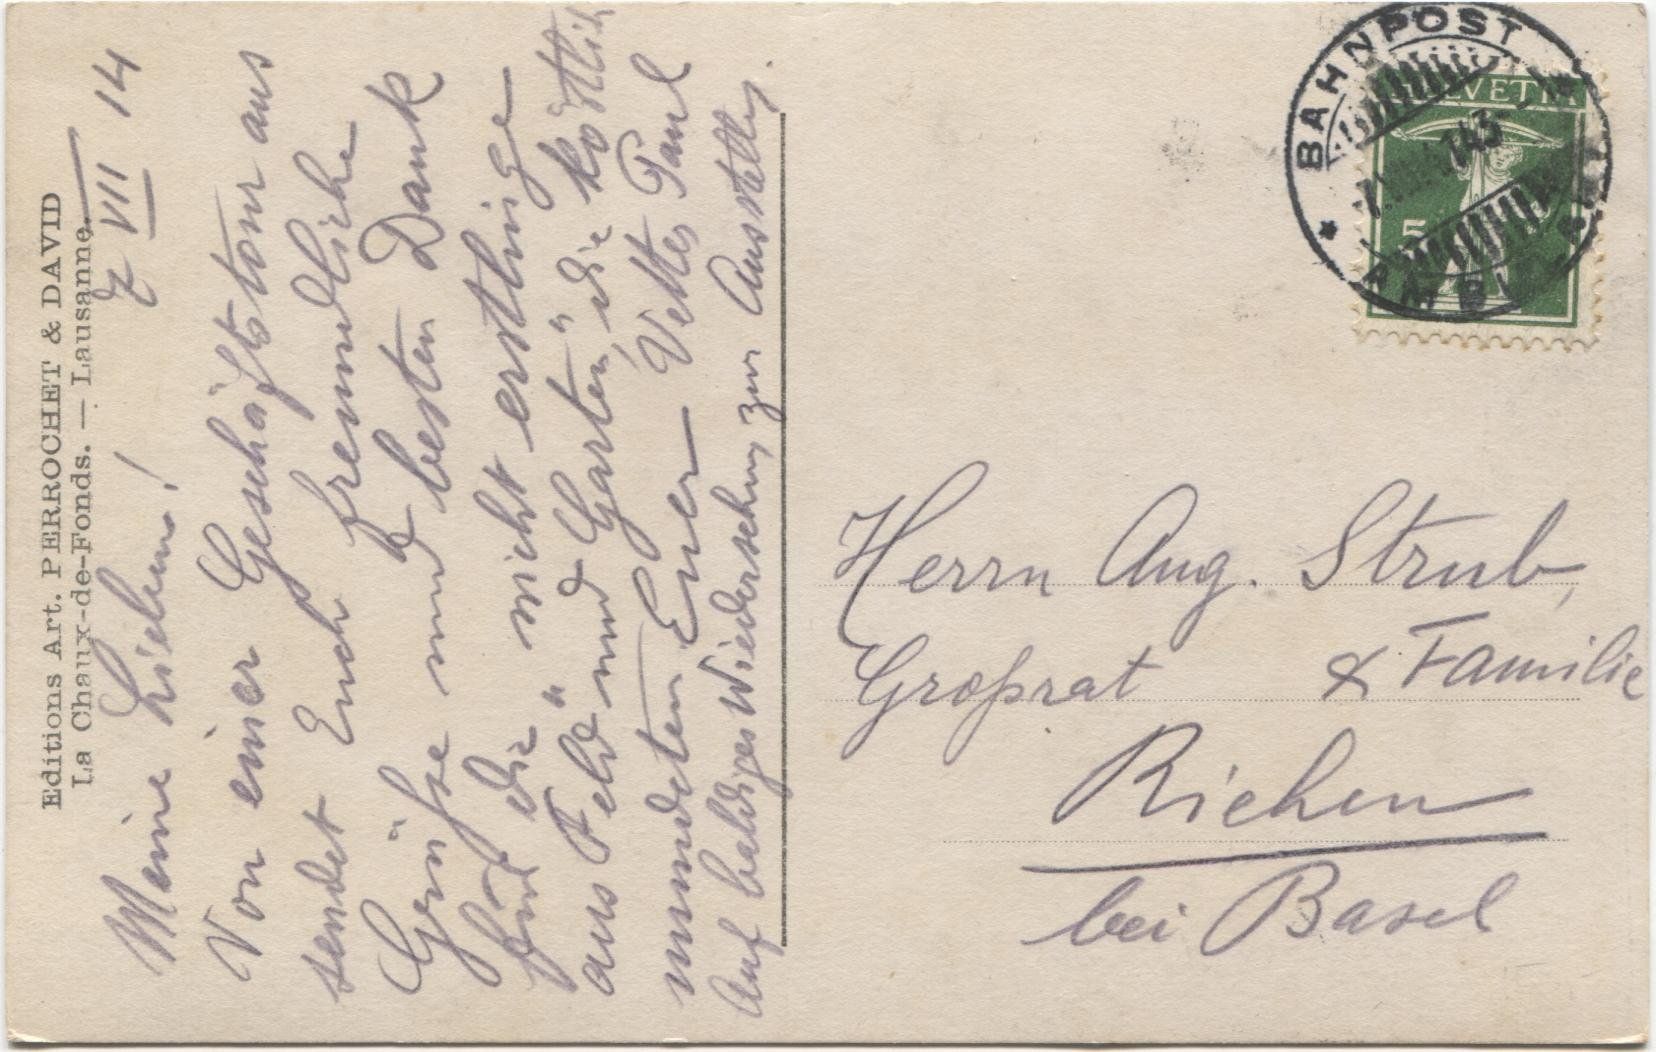 Editions Art. PERROCHET & DAVID
La Chaux-de-Fonds. — Lausanne.
VII 14
Meine Lieben!
Von einer Geschäftstour aus
sendet Euch freundliche
Grüsse und besten Dank
für die nicht erstlinge
aus "Feld und Garten", die köstlich
mundeten Euer Vetter Paul
Auf baldiges Wiedersehen zur Ausstellg.
BAHNPOST
AMBULANT
HELVETIA
5
Herrn Aug. Strub,
Großrat & Familie
Riehen
bei Basel